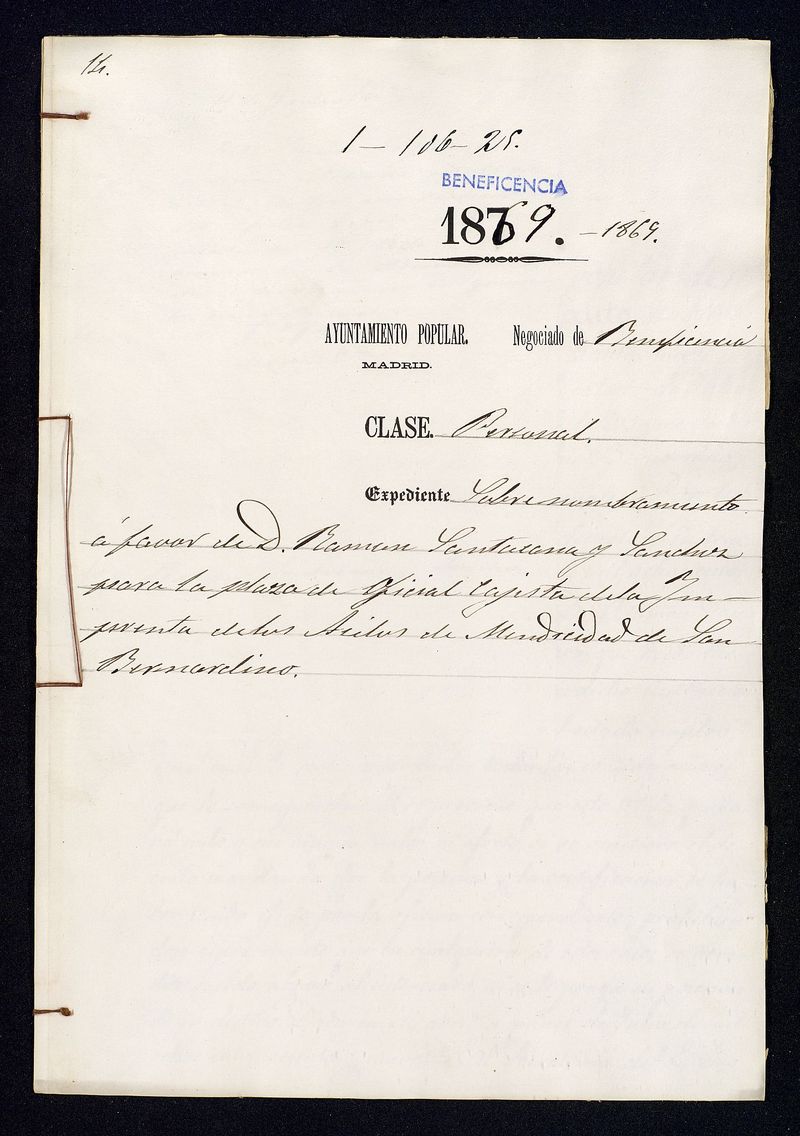 14.
1-106-25.
BENEFICENCIA
1869. -1869.
AYUNTAMIENTO POPULAR. Negociado de Beneficencia
MADRID.
CLASE. Personal.
Expediente Sobre nombramiento
á favor de D. Ramon Santacana y Sanchez
para la plaza de Oficial Cajista de la Im-
prenta de los Asilos de Mendicidad de San
Bernardino.